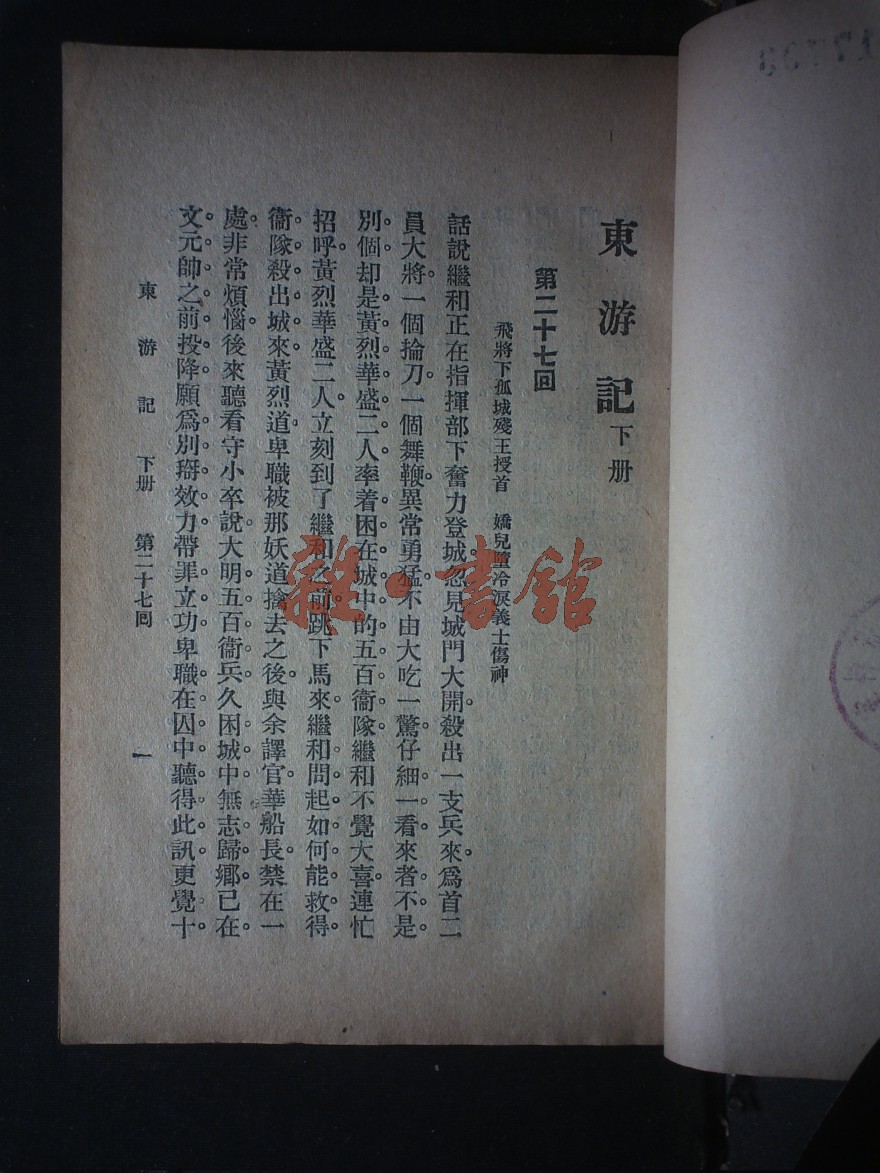 東游記下册
第二十七回
飛將下孤城殘王授首　嬌兒墮冷淚義士傷神
話說繼和正在指揮部下奮力登城。忽見城門大開。殺出一支兵來。爲首二
員大將。一個掄刀。一個舞鞭。異常勇猛。不由大吃一驚。仔細一看。來者不是
別個。却是黃烈華盛二人。率着困在城中的五百衞隊。繼和不覺大喜。連忙
招呼。黃烈華盛二人。立刻到了繼和之前。跳下馬來。繼和問起如何能救得
衞隊。殺出城來。黃烈道。卑職被那妖道擒去之後。與余譯官。華船長。禁在一
處。非常煩惱。後來聽看守小卒說。大明五百衞兵。久困城中。無志歸鄉。已在
文元帥之前投降。願爲別擀效力。帶罪立功。卑職在囚中聽得此訊。更覺十
東游記　下册　第二十七回　一
雜·書館